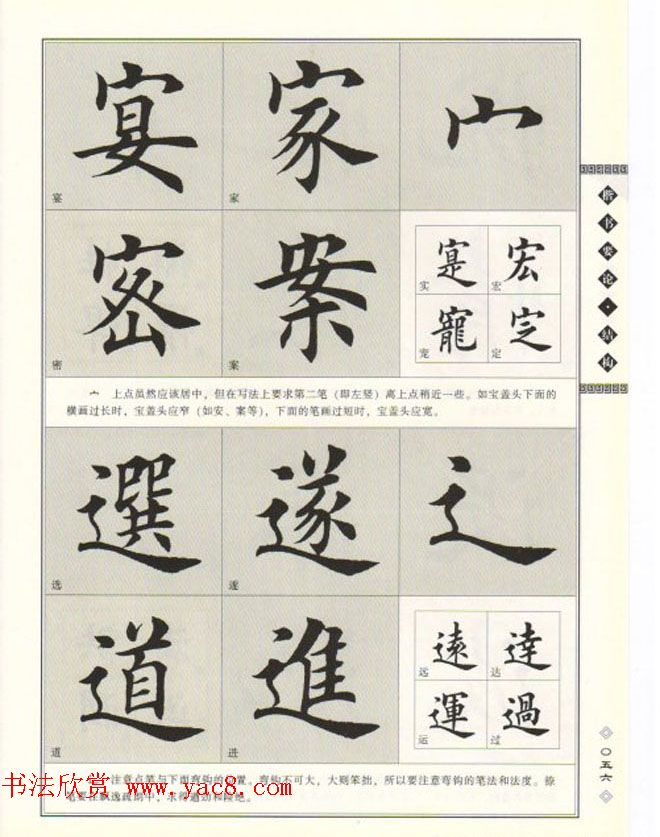 宴 家 宀
宴 家
密 案 寔 宏
实 宏
寵 定
密 案 宠 定
宀 上点虽然应该居中，但在写法上要求第二笔（即左竖）离上点稍近一些。如宝盖头下面的
横画过长时，宝盖头应窄（如安、案等），下面的笔画过短时，宝盖头应宽。
選 遂 辶
选 遂
道 進 遠 達
远 达
運 過
道 进 运 过
注意点笔与下面弯钩的位置。弯钩不可大，大则笨拙，所以要注意弯钩的笔法和法度。捺
楷书要论·结构
〇五六
书法欣赏 www.yac8.com